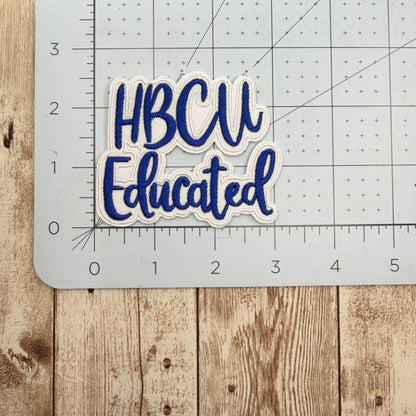 HBCU
Educated
3
2
1
0
0 1 2 3 4 5